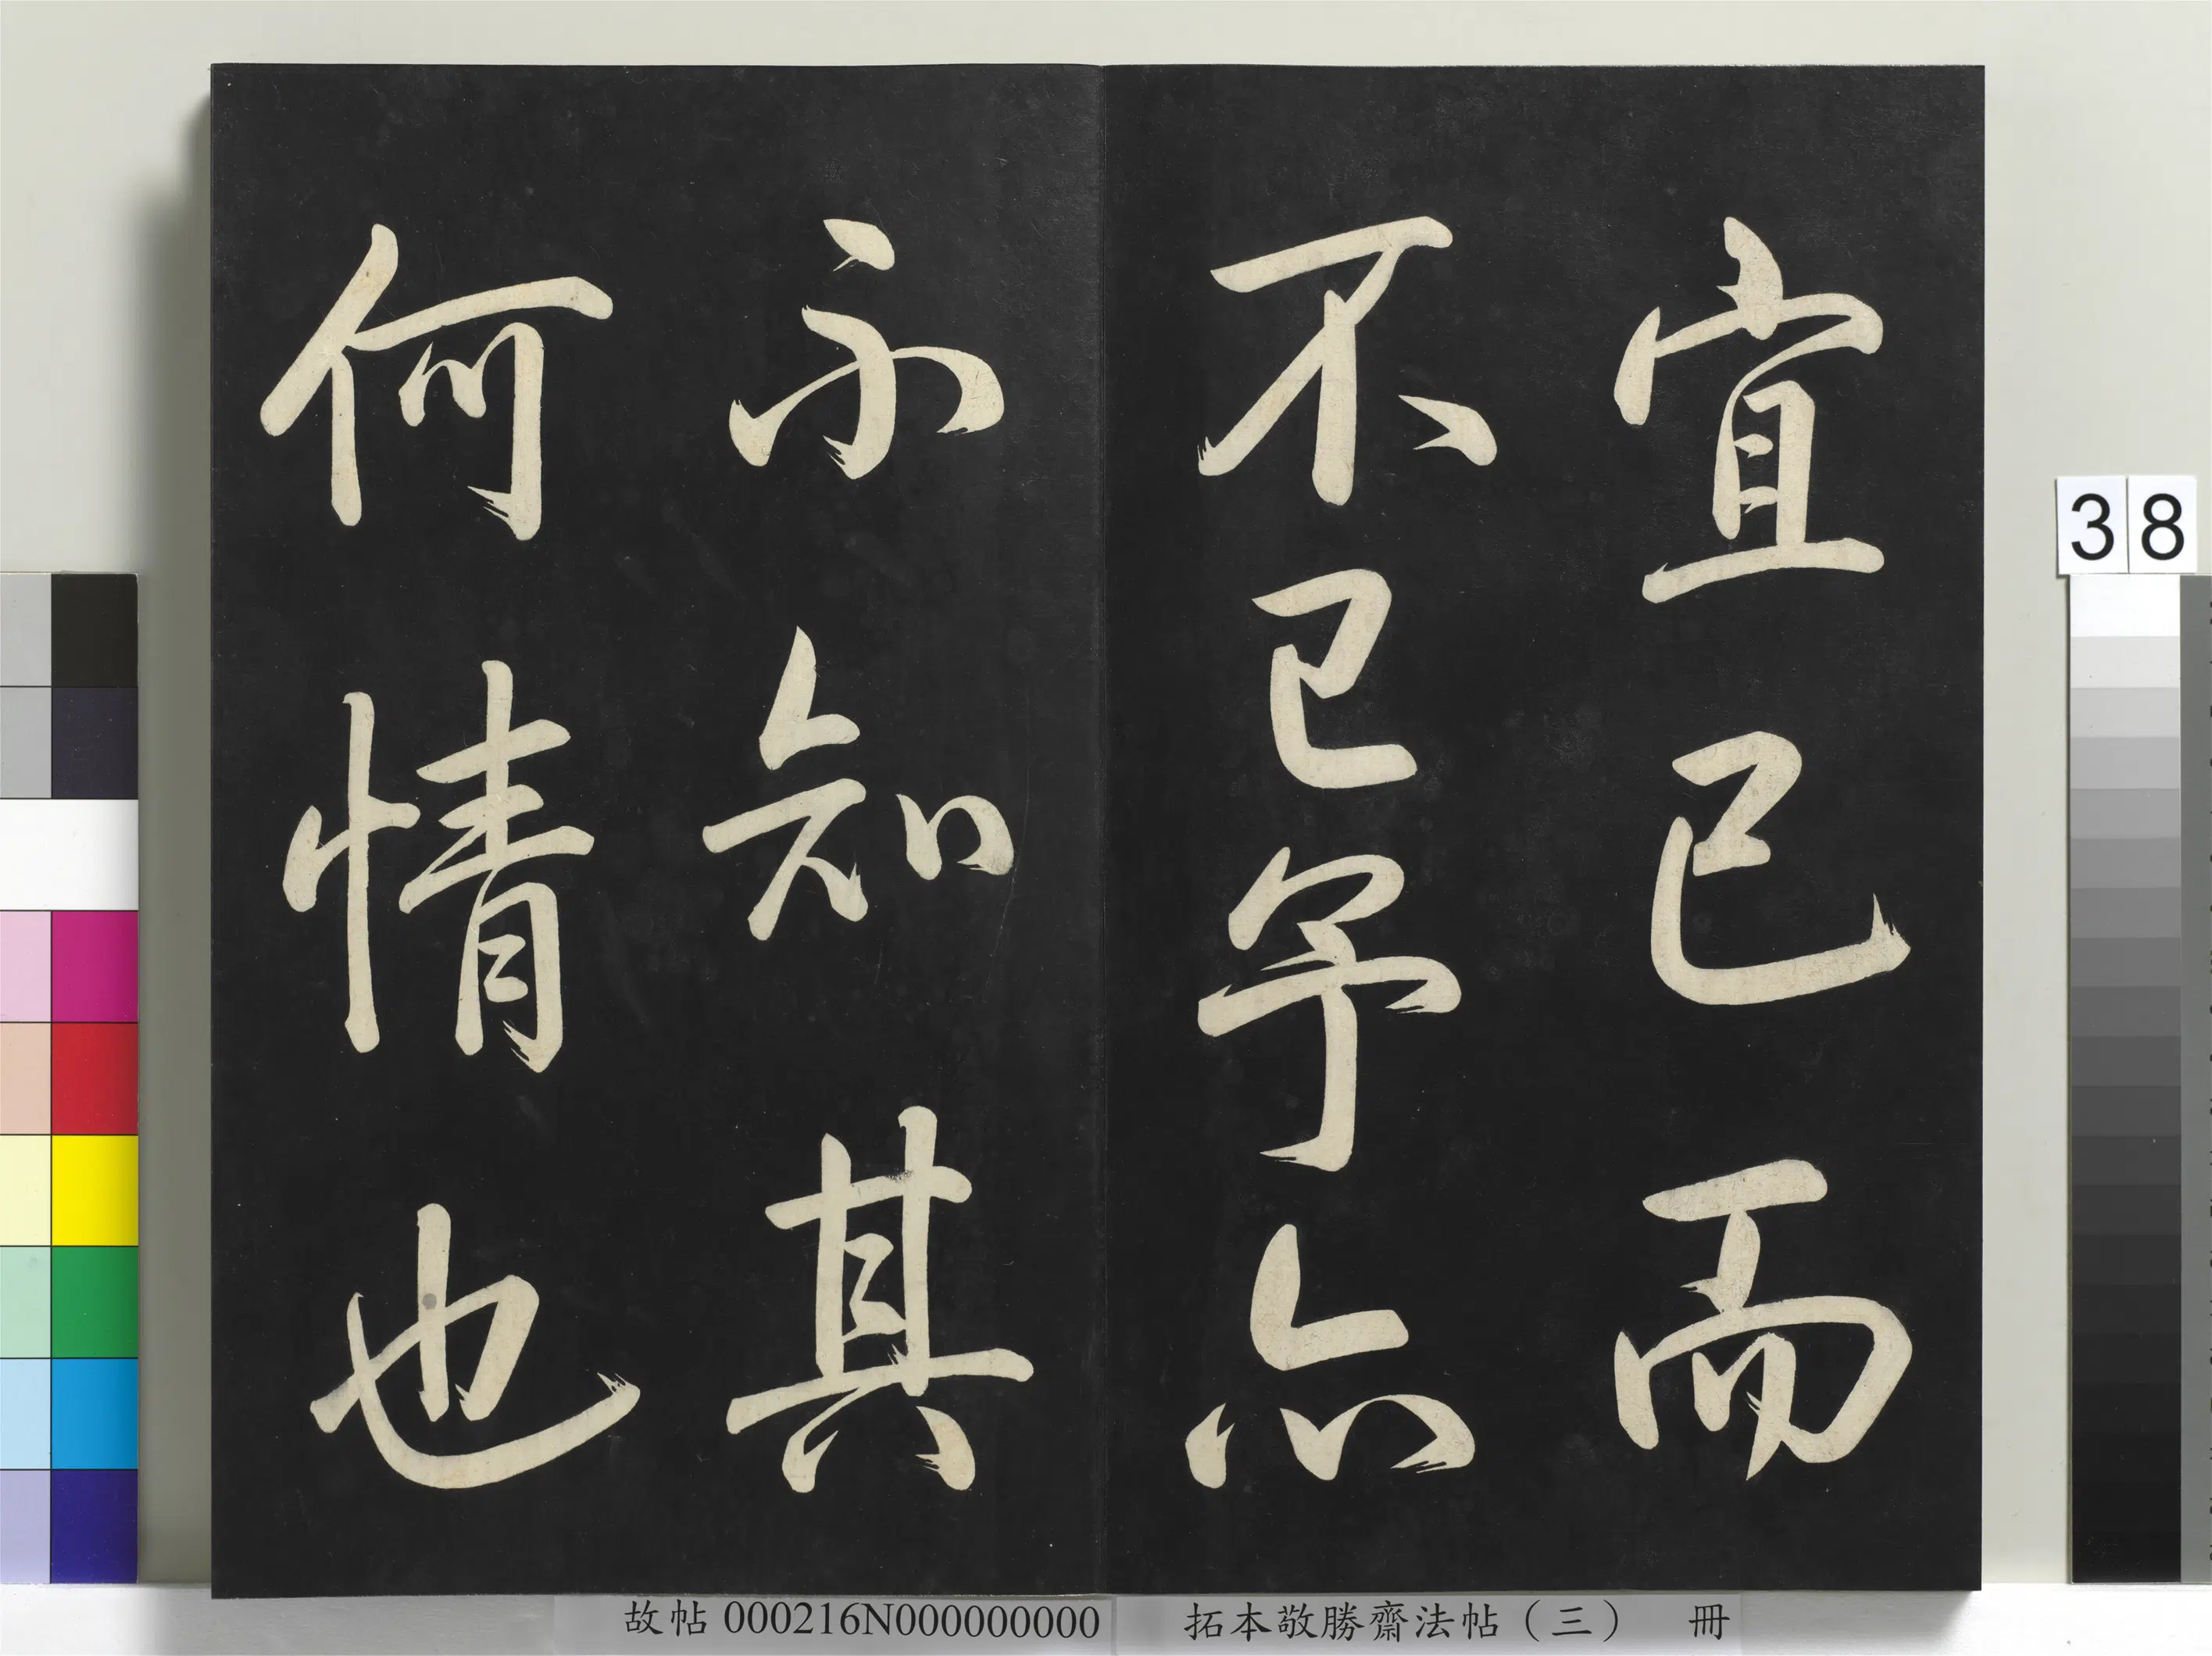 宜已而
不已予亦
不知其
何情也
38
故帖000216N000000000 拓本敬勝齋法帖（三） 冊